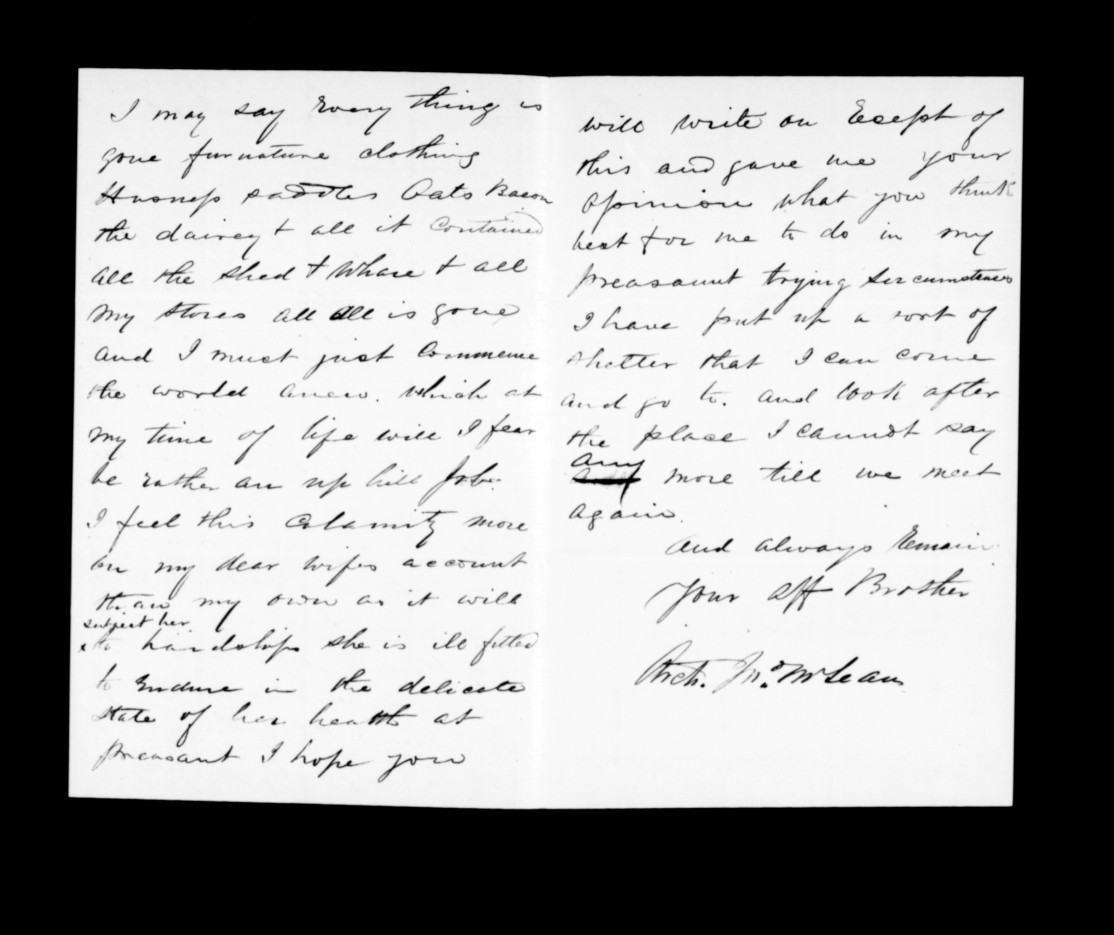 I may say Every thing is
gone furnature clothing
Harness saddles Oats Bacon
the dairey & all it Contained
all the shed & Whare & all
my stores all all is gone
and I must just Commence
the world anew. which at
my time of life will I fear
be rather an up hill Job.
I feel this Calamity more
on my dear wifes account
than my own as it will
subject her
x to hardships she is ill fitted
to Endure in the delicate
state of her health at
preasant I hope you
will write on Recept of
this and gave me your
opinion what you think
best for me to do in my
preasaunt trying sircumstences
I have put up a sort of
shelter that I can come
and go to. and look after
the place I cannot say
any
more till we meet
again.
And always Remain
Your aff Brother
Arch. Jno. McLean